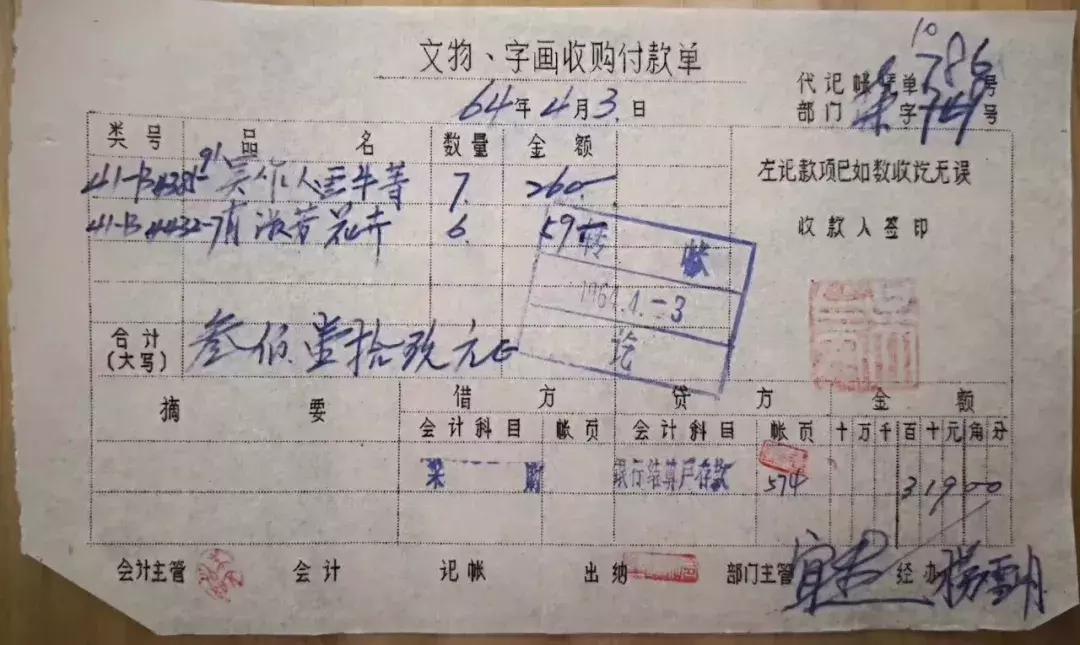 文物、字画收购付款单
10
代记帐凭单786号
64年4月3日
部门 字 749号
类号 品名 数量 金额
41-B4385-91 吴作人墨牛等 7. 260-
左记款项已如数收讫无误
41-B4432-7 花卉 6. 59-
收款人签印
转帐
1964.4.-3
讫
合计(大写) 叁佰壹拾玖元正
摘要 借方 贷方 金额
会计科目 帐页 会计科目 帐页 十万千百十元角分
银行结算户存款 574 31900
会计主管 会计 记帐 出纳 部门主管 经办